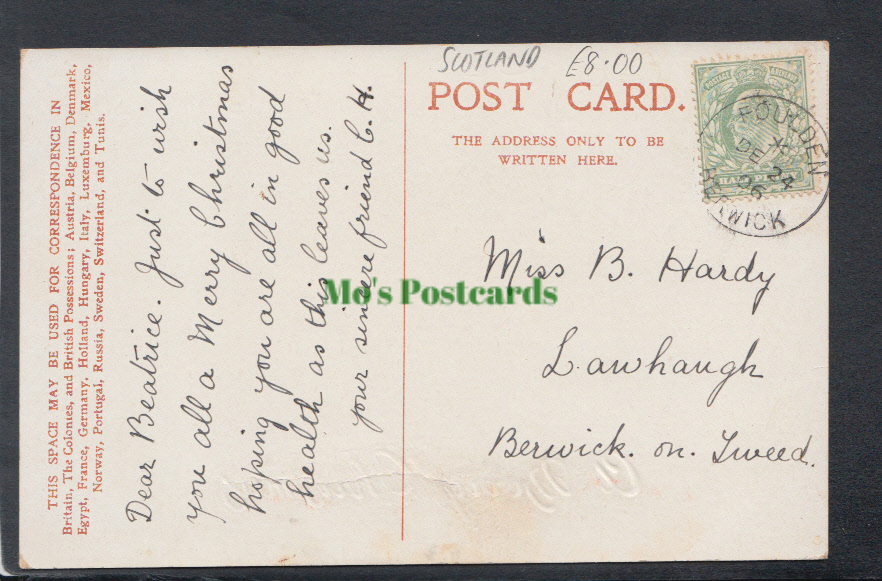 THIS SPACE MAY BE USED FOR CORRESPONDENCE IN
Britain, The Colonies, and British Possessions; Austria, Belgium, Denmark,
Egypt, France, Germany, Holland, Hungary, Italy, Luxemburg, Mexico,
Norway, Portugal, Russia, Sweden, Switzerland, and Tunis.
Dear Beatrice. Just to wish
you all a Merry Christmas
hoping you are all in good
health as this leaves us.
your sincere friend C. H.
SCOTLAND £8.00
POST CARD.
THE ADDRESS ONLY TO BE
WRITTEN HERE.
FOULDEN
X
DE 24
06
BERWICK
Miss B. Hardy
Lawhaugh
Berwick. on. Tweed.
Mo's Postcards